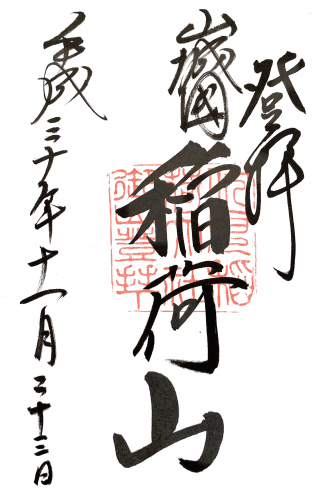 登拝
山城國
稲荷山
平成三十年十一月二十三日